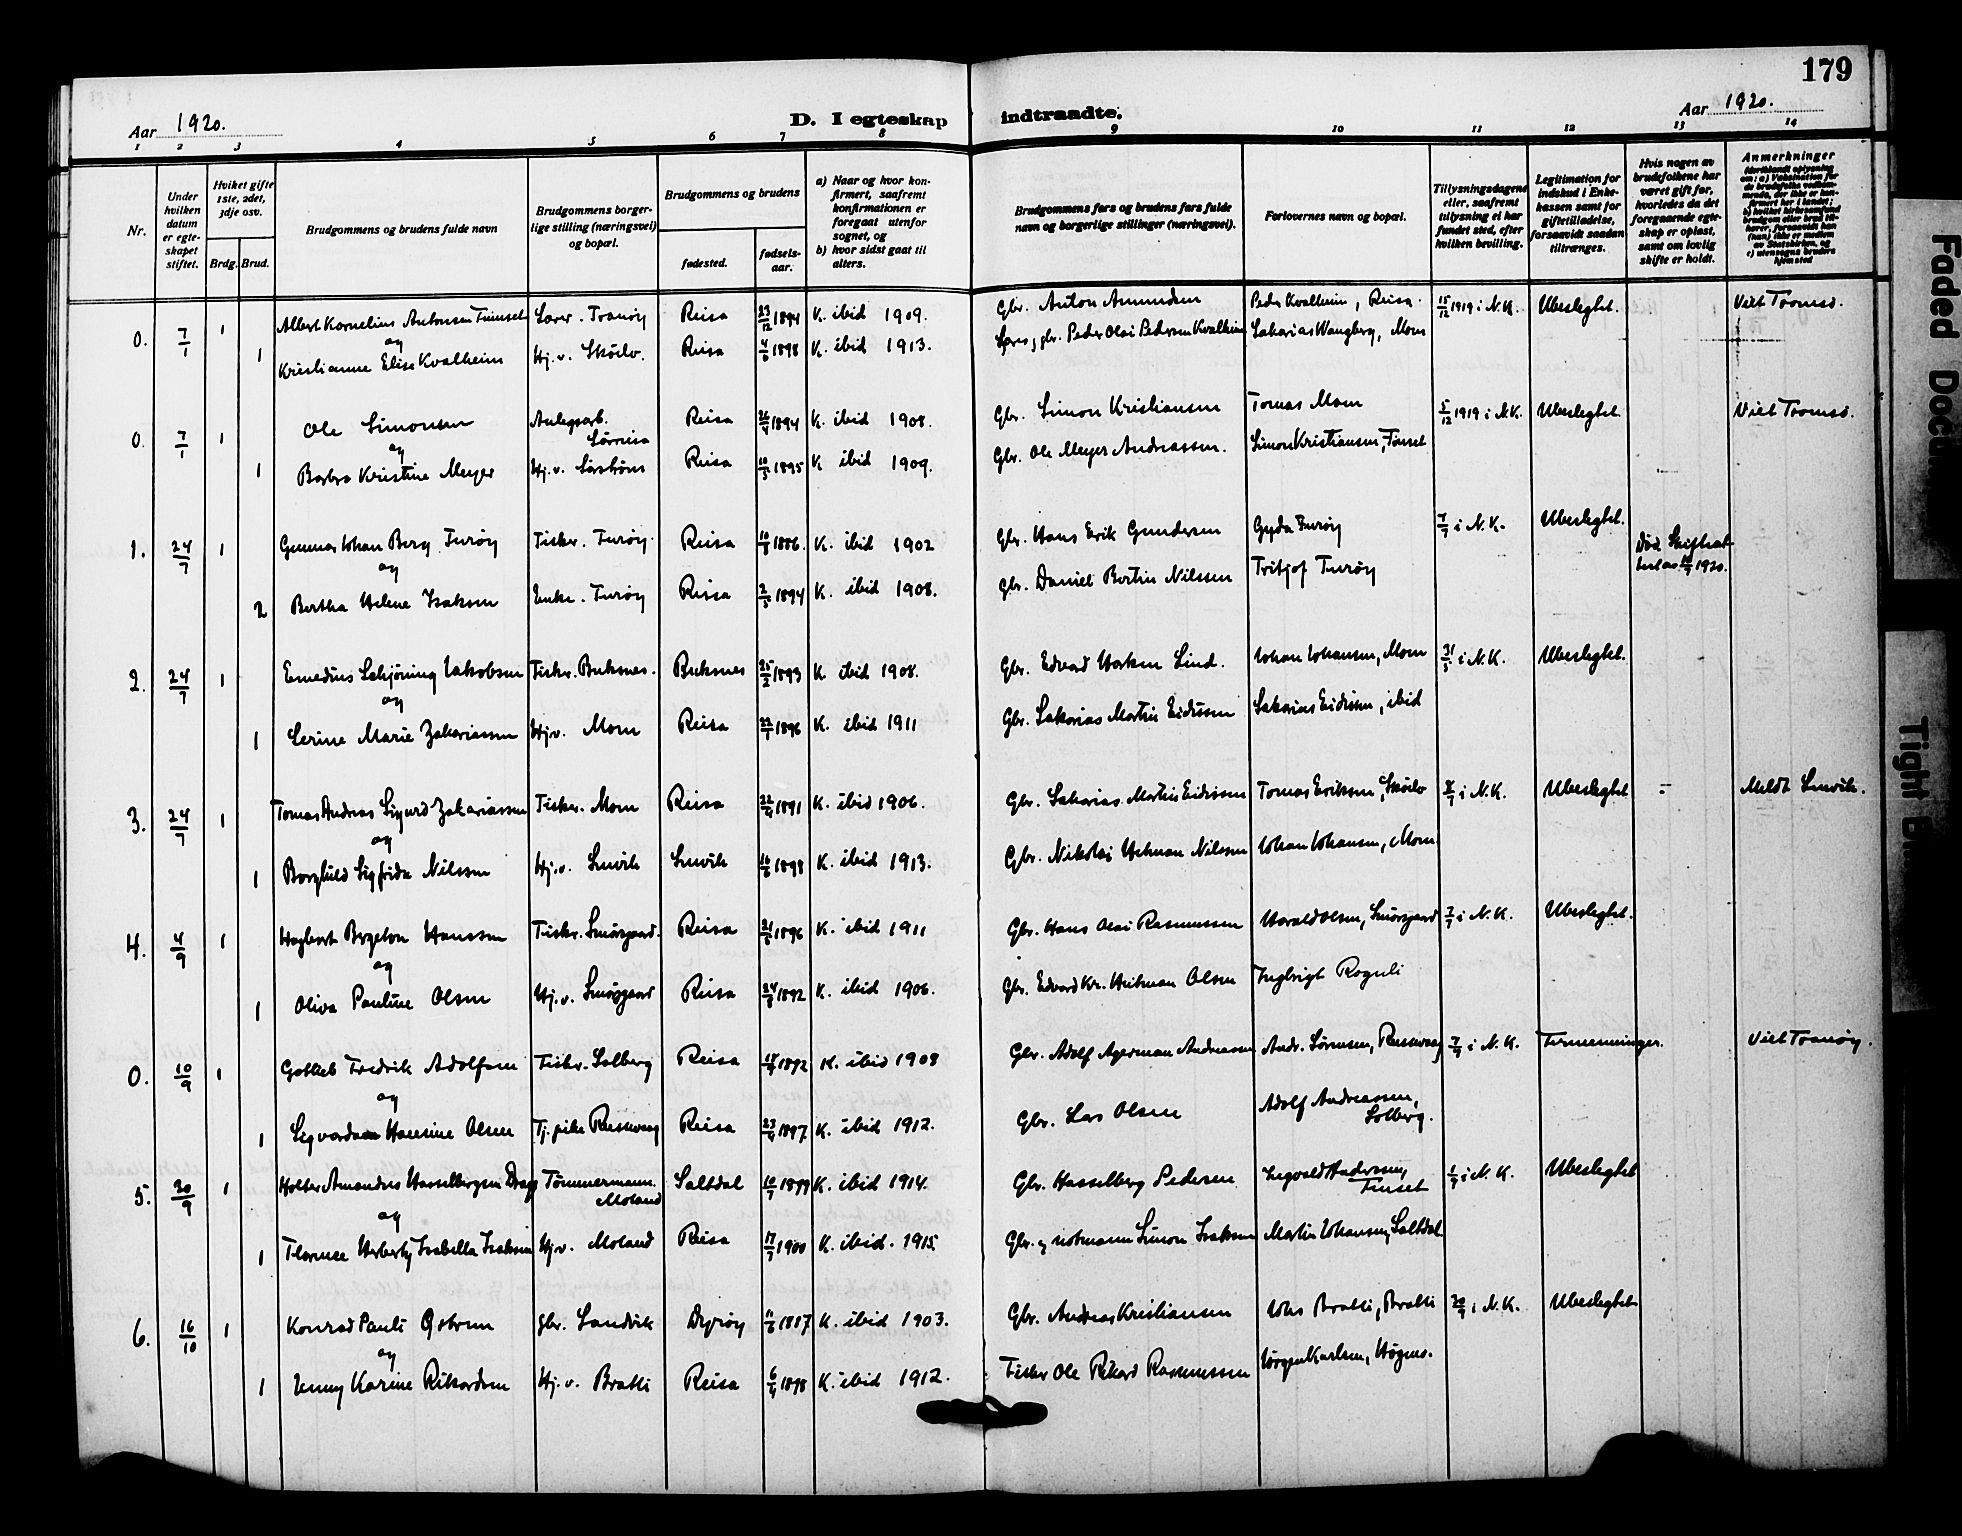 179
Aar 1920.
D. I egteskap indtraadte.
Aar 1920.
1 2 3 4 5 6 7 8 9 10 11 12 13 14
Nr.
Under hvilken datum er egteskapet stiftet.
Hviket gifte 1ste, 2det, 3dje osv.
Brdg. Brud.
Brudgommens og brudens fulde navn
Brudgommens borgerlige stilling (næringsvei) og bopæl.
Brudgommens og brudens
fødested.
fødselsaar.
a) Naar og hvor konfirmert, saafremt konfirmationen er foregaat utenfor sognet, og
b) hvor sidst gaat til alters.
Brudgommens fars og brudens fars fulde navn og borgerlige stillinger (næringsvei).
Forlovernes navn og bopæl.
Tillysningsdagene eller, saafremt tillysning ei har fundet sted, efter hvilken bevilling.
Legitimation for indskud i Enkekassen samt for giftetilladelse, forsaavidt saadan tiltrænges.
Hvis nogen av brudefolkene har været gift før, hvorledes da det foregaaende egteskap er opløst, samt om lovlig skifte er holdt.
Anmerkninger
0. 7/1 1 Albert Kornelius Antonsen Tinnset Lærer. Tranøy Reisa 23/12 1894 K. ibid 1909. Gbr. Anton Amundsen Peder Kvalheim, Reisa. 15/12 1919 i N.K. Ubeslegtet. Viet Tromsø.
og
1 Kristianne Elise Kvalheim Hj.v. Sköelv. Reisa 1898 K. ibid 1913. gbr. Peder Olai Pedersen Kvalheim Sakarias Wangberg, Moen
0. 7/1 1 Ole Simonsen Anlegsarb. Sørreisa Reisa 26/4 1894 K. ibid 1908. Gbr. Simon Kristiansen Tomas Moen 5/12 1919 i N.K. Ubeslegtet. Viet Tromsø.
og
1 Barbra Kristine Meyer Hj.v. Sørstrøm Reisa 10/5 1895 K ibid 1909. Gbr. Ole Meyer Andreassen. Simon Kristiansen, Finset
1. 24/7 1 Gunnar Johan Berg Furøy Fisker. Furøy. Reisa 10/8 1886. K. ibid 1902 Gbr. Hans Erik Gundersen Gyda Furøy 7/7 i N.K. Ubeslegtet. Død Skifteat
og
2 Bertha Helene Isaksen Enke. Furøy Reisa 2/5 1894 K. ibid 1908. Gbr. Daniel Bertin Nilssen Fritjof Furøy 1920.
2. 24/7 1 Emedius Schjöning Jakobsen Fisker. Buksnes. Buksnes 25/2 1893 K ibid 1908. Gbr. Edvard Haakon Lind. Johan Johansen, Moen 31/5 i N.K. Ubeslegtet.
og
1 Serine Marie Zakariassen Hj.v. Moen Reisa 22/1 1896 K. ibid 1911 Gbr. Sakarias Martin Eidissen Sakarias Eidissen, ibid
3. 24/7 1 Tomas Andreas Sigurd Zakariassen Fisker. Moen Reisa 22/4 1891 K. ibid 1906. Gbr. Sakarias Martin Eidissen Tomas Eriksen, Sköelv i N.K. Ubeslegtet - Meldt Lenvik.
og
1 Borghild Sigfrida Nilssen Hj.v. Lenvik Lenvik 16/6 1898 K. ibid 1913. Gbr. Nikolai Helman Nilssen Johan Johansen, Moen
4. 4/9 1 Hagbart Bergeton Hanssen Fisker. Smörsgaard. Reisa 1896 K. ibid 1911 Gbr. Hans Olai Rasmussen Harald Olsen, Smörsgaard 7/7 i N.K. Ubeslegtet.
og
1 Oliva Pauline Olsen Hj.v. Smörsgaard Reisa 24/8 1892 K. ibid 1906. Gbr. Edvard Kr. Heitman Olsen Ingbrigt Rognli
0. 10/9 1 Gotlieb Fredrik Adolfsen Fisker. Solberg Reisa 1892 K. ibid 1908 Gbr. Adolf Agerman Andreassen Andr. Sørensen, Russevaag 7/9 i N.K. Firmenninger. Viet Tranöy.
og
1 Sigvarda Hansine Olsen Tj. pike Russevaag Reisa 23/4 1897. K. ibid 1912. Gbr. Lars Olsen Adolf Andreassen, Solberg.
5. 30/9 1 Holter Amandus Hasselbergsen Drage Tömmermann. Moland Saltdal 10/7 1899 K. ibid 1914. Gbr. Hasselberg Pedersen Ingvald Andersen, Finset 1/7 i N.K. Ubeslegtet
og
1 Florence Herberty Isabella Isaksen Hj.v. Moland Reisa 17/7 1900 K. ibid. 1915 Gbr. og notmann Simon Isaksen Martin Johansen, Saltdal.
6. 16/10 1 Konrad Pauli Östrem gbr. Sandvik Dyröy 11/6 1887 K. ibid 1903. Gbr. Andreas Kristiansen Johs Bratli, Bratli 20/9 i N.K. Ubeslegtet
og
1 Jenny Karine Rikardsen Hj.v. Bratli Reisa 6/4 1898 K. ibid 1912. Fisker Ole Rikard Rasmussen Jörgen Karlsen, Högmo.
Faded Docu
Tight B